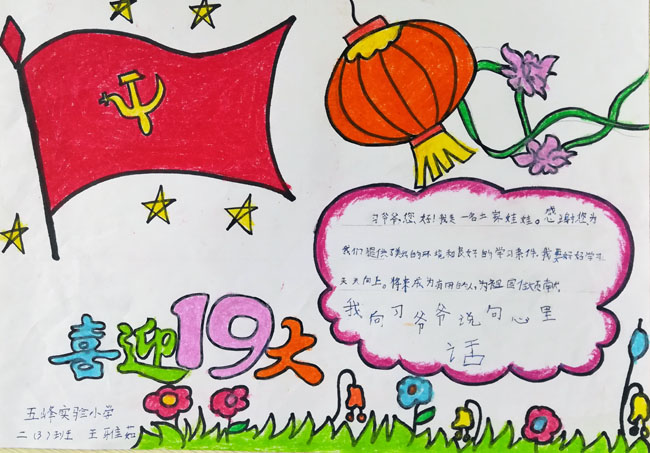 习爷爷,您好!我是一名土家娃娃。感谢您为
我们提供了这么好的环境和良好的学习条件,我要好好学习
天天向上。将来成为有用的人,为祖国做贡献
我向习爷爷说句心里
话
喜迎19大
五峰实验小学
二(3)班 王雅茹